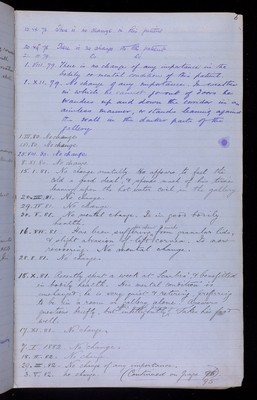 There is no change in this patient
There is no change in the patient
2. V. 79. Do Do
5. VIII. 79. There is no change of any importance in the
bodily or mental condition of this patient.
1. XII. 79. No change of any importance. In weather
in which he cannot go out of doors he
wanders up and down the corridor in an
aimless manner, or stands leaning against
the wall in the darker parts of the
gallery.
No change.
No change
No change
No change
15. I. 81. No change mentally. He appears to feel the
cold a good deal & spends most of his time
leaning upon the hot water coil in the gallery
No change.
29. IV. 81. No change.
20. V. 81. No mental change. Is in good bodily
health.
16. VII. 81. Has been suffering from granular lids,
& slight abrasion of left cornea. Is now
recovering. No mental change.
No change.
15. X. 81. Recently spent a week at & benefitted
in bodily health. His mental condition is
unchanged: he is very quiet & retiring, preferring
to be in a room or gallery alone. Answers
questions briefly, but intelligently; takes his food
well.
17. XI. 81. No change.
7. I. 1882 No change.
No change
No change of any importance.
3. V. 82 no change (Continued on Page